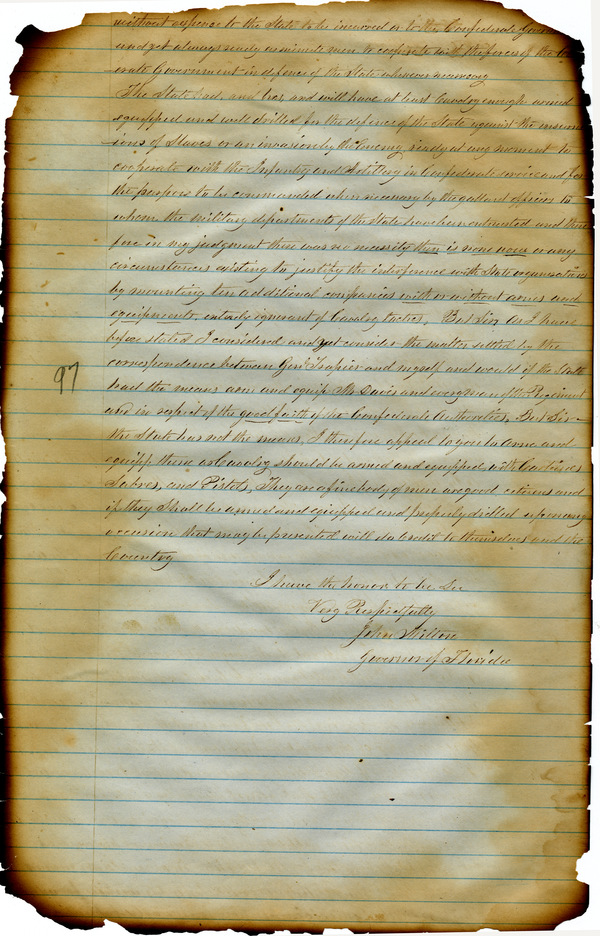 without expense to the State to be incurred or to the Confederate Gover
and yet always ready as minute men to cooperate with the forces of the
erate Government in defence of the State whenever necessary
The State had, and has, and will have at least Cavalry enough armed
equipped and well drilled for the defence of the State against the insurrec
ions of Slaves or an invasion by the Enemy ready at any moment to
cooperate with the Infantry and Artillery in Confederate service and for
the purpose to be commanded when necessary by the gallant officers to
whom the military departments of the State have been entrusted and there
fore in my judgment there was no necessity there is none now or any
circumstances existing to justify the interference with State organisations
by mounting ten additional companies with or without arms and
equipments entirely ignorant of Cavalry tactics. But Sir As I have
before stated I considered and yet consider the matter settled by the
correspondence between Genl Trapier and myself and would if the State
97
had the means arm and equip Mr Davis and every man of the Regiment
and in respect of the good faith of the Confederate Authorities, But Sir
the State has not the means, I therefore appeal to you to arm and
equipp them as Cavalry should be armed and equipped with Carbines
Sabres, and Pistols, They are a fine body of men are good citizens and
if they shall be armed and equipped and properly drilled upon any
occasion that may be presented will do credit to themselves and the
Country
I have the honor to be Sir
Very Respectfully
John Milton
Governor of Florida